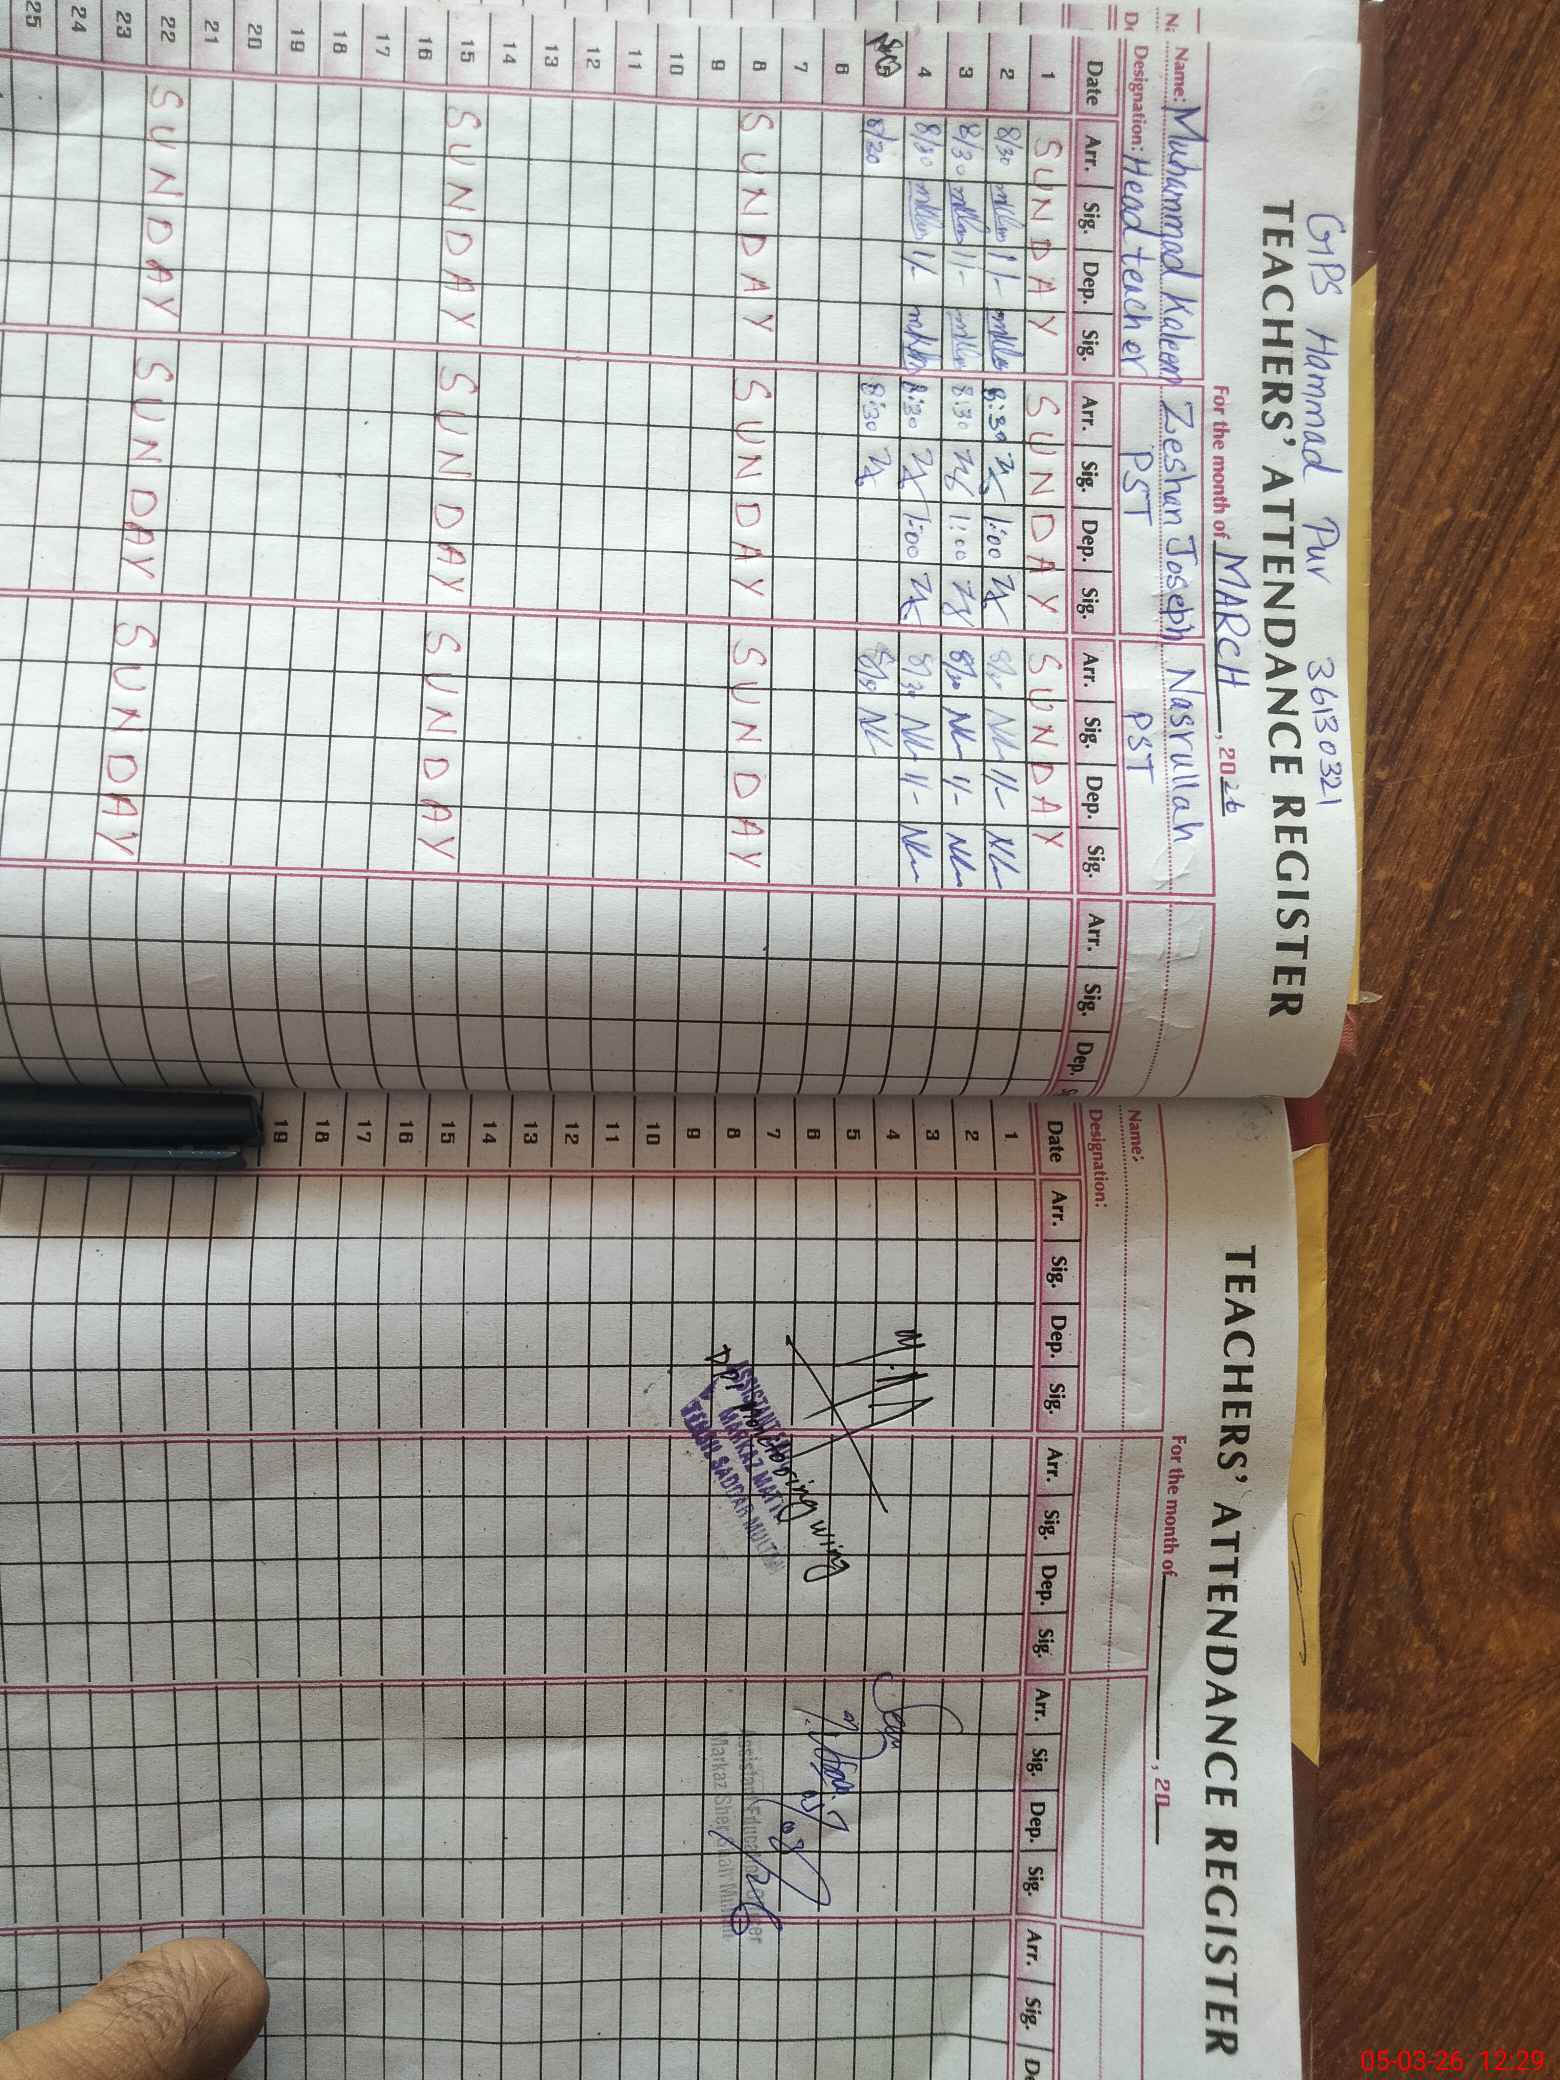 GPS Hammad Pur 36130321
TEACHERS' ATTENDANCE REGISTER
For the month of MARCH, 2026
Name: Muhammad Kaleem Zeshan Joseph Nasrullah
Designation: Head teacher PST PST
Date Arr. Sig. Dep. Sig. Arr. Sig. Dep. Sig. Arr. Sig. Dep. Sig. Arr. Sig. Dep.
1 SUNDAY SUNDAY SUNDAY
2 8/30 1/- 8:30 1:00 8/30 1/-
3 8/30 1/- 8:30 1:00 8/30 1/-
4 8/30 1/- 8:30 1:00 8/30 1/-
8/30 8:30 8/30
6
7
8 SUNDAY SUNDAY SUNDAY
9
10
11
12
13
14
15 SUNDAY SUNDAY SUNDAY
16
17
18
19
20
21
22 SUNDAY SUNDAY SUNDAY
23
24
25
TEACHERS' ATTENDANCE REGISTER
For the month of , 20
Name:
Designation:
Date Arr. Sig. Dep. Sig. Arr. Sig. Dep. Sig. Arr. Sig. Dep. Sig. Arr. Sig.
1
2
3
4
5
6
7
8
9
10
11
12
13
14
15
16
17
18
19
Monitoring wing
ASSISTANT
MARKAZ
TEHSIL SADDAR MULTAN
Seen
Assistant Education Officer
Markaz Sher Shah Multan
05-03-26 12:29